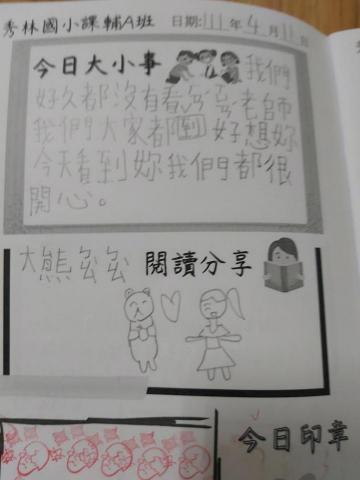 秀林國小課輔A班 日期:111年4月11日
今日大小事 我們
好久都沒有看訫訫老師
我們大家都 好想妳
今天看到妳我們都很
開心。
大熊 閱讀分享
今日印章